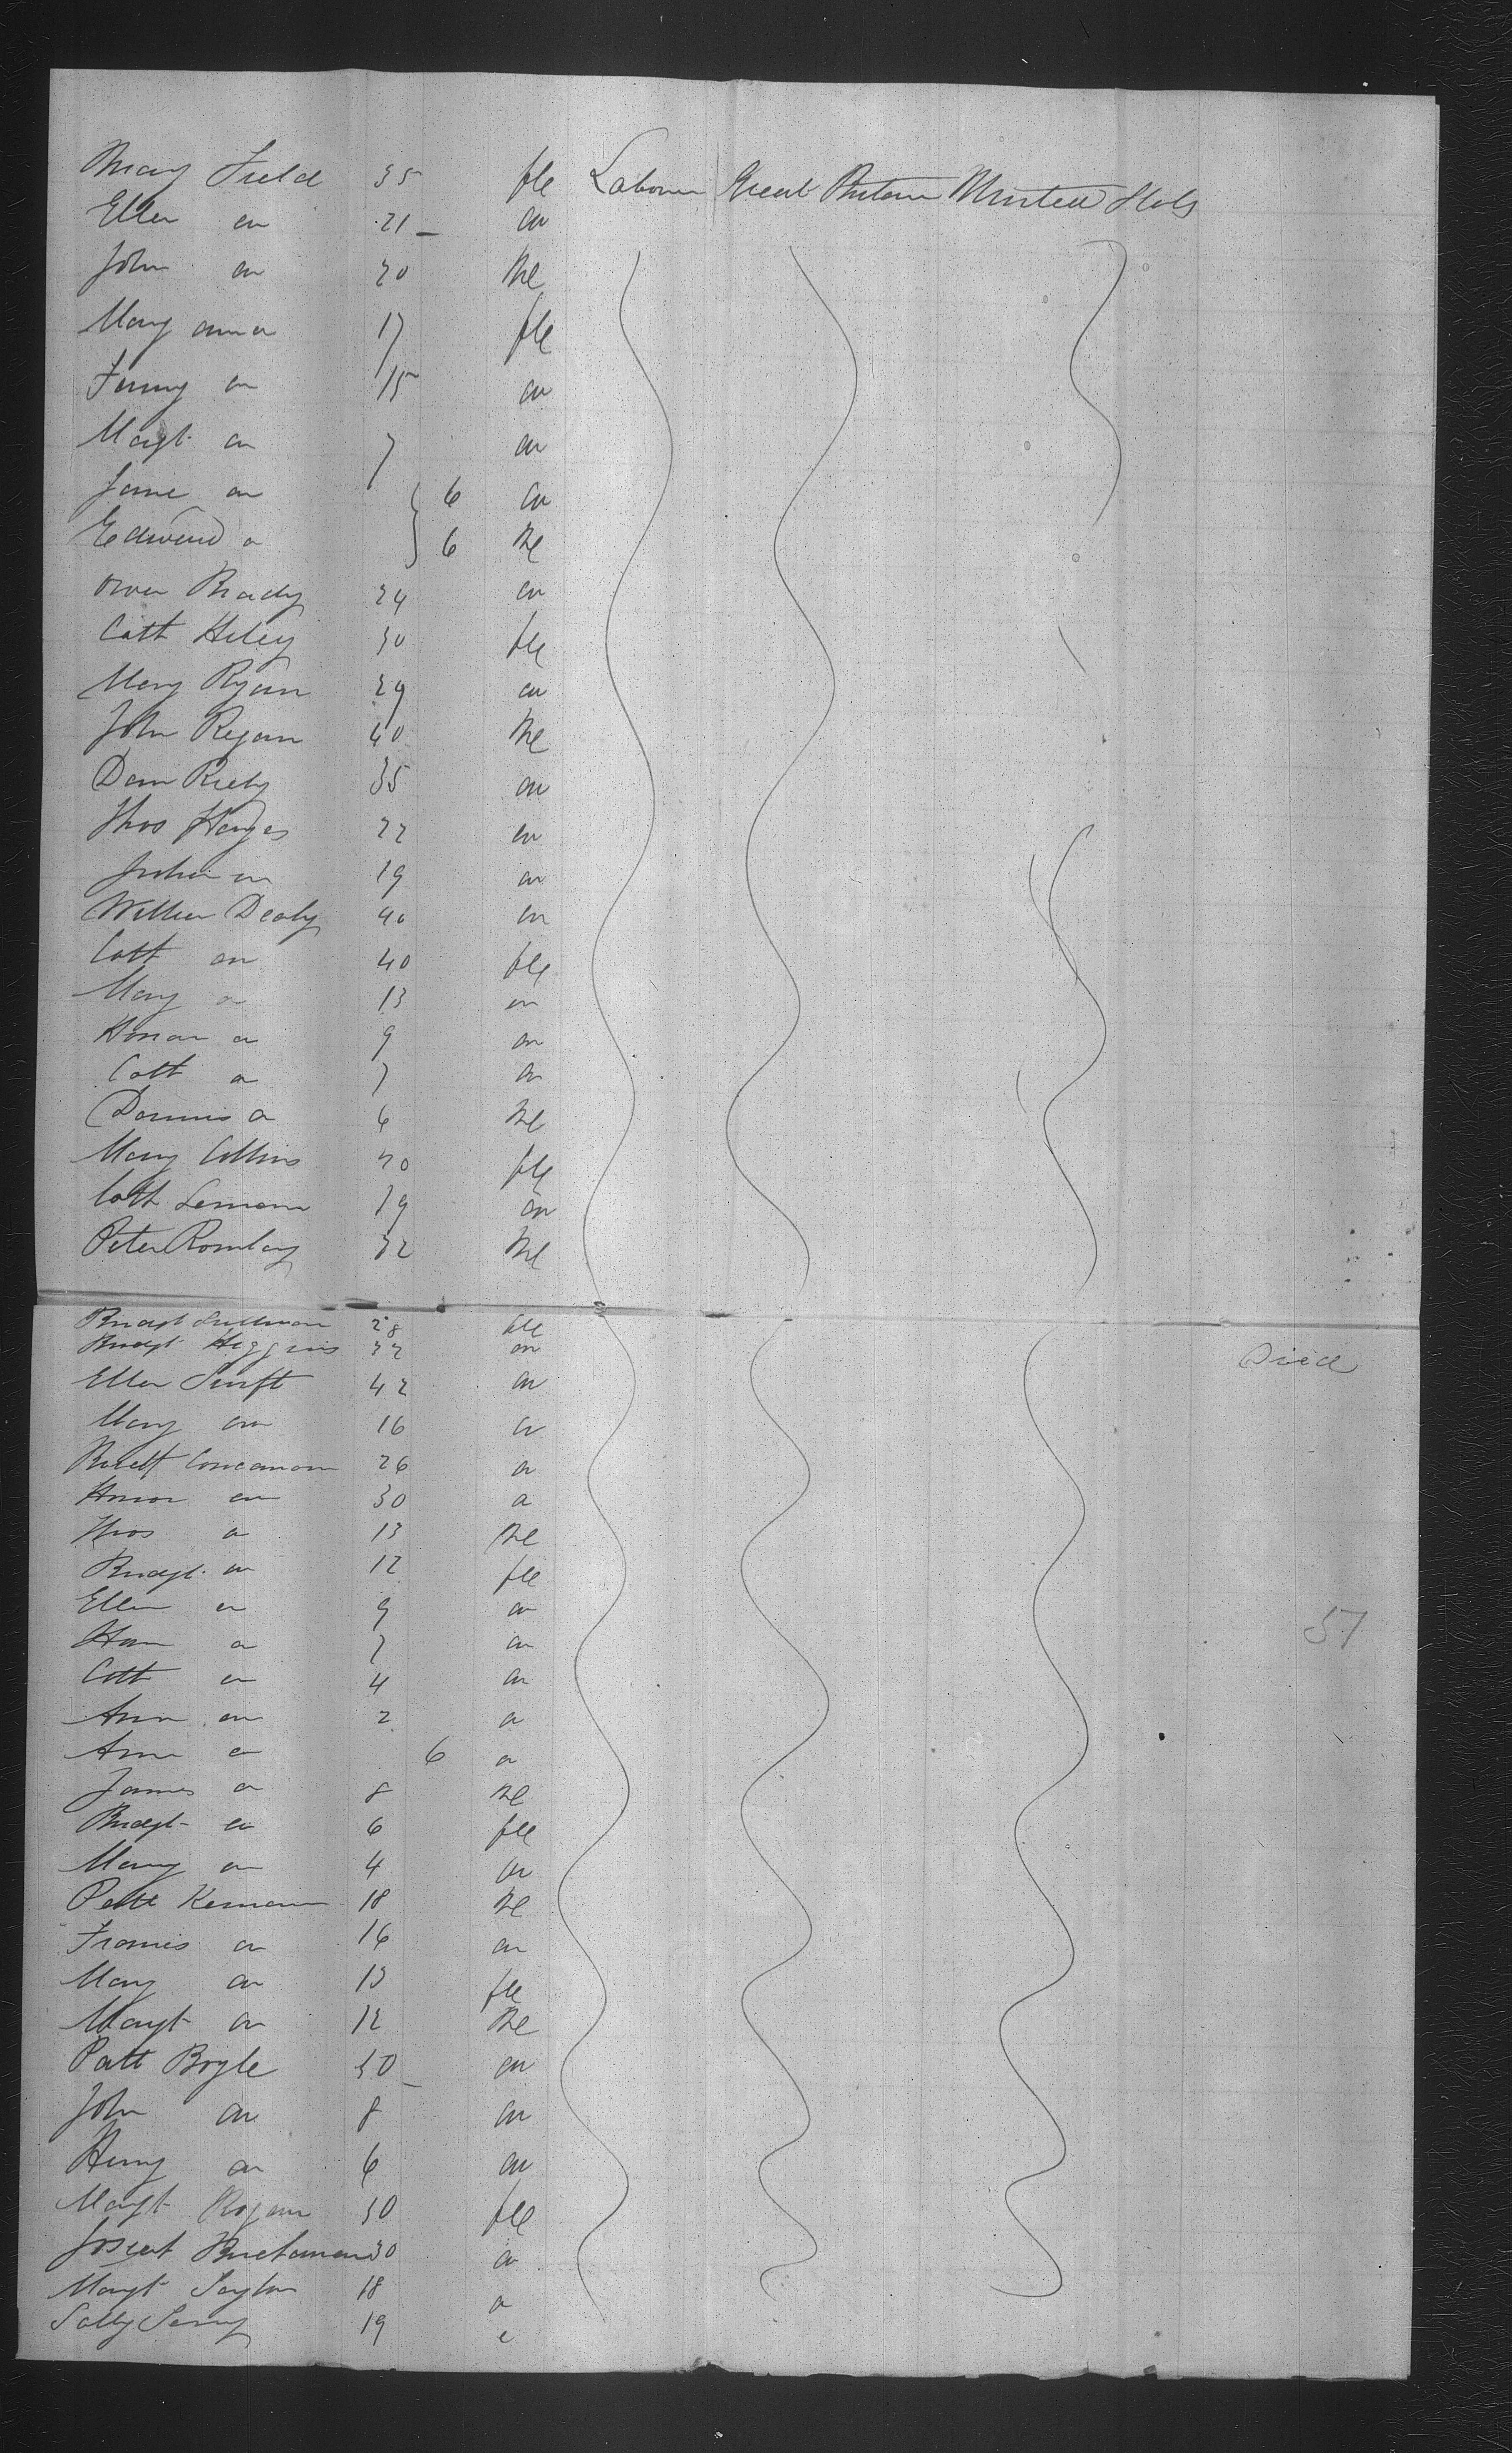 Mary Field 35 fle Labourer Great Britain United States
Ellen do 21 do
John do 20 Me
Mary ann do 17 fle
Fanny do 15 do
Margt do 7 do
Jane do 6 do
Edward do 6 Me
Owen Brady 24 do
Cath 30 fle
Mary Ryan 29 do
John Regan 40 Me
Dan 35 do
Thos Hayes 22 do
do 19 do
William Dealy 40 do
Cath do 40 fle
Mary do 13 do
Honar do 9 do
Cath do 7 do
Dennis do 6 Me
Mary Collins 20 fle
Cath 19 do
Peter 32 Me
Bridgt Sullivan 28 fle
Bridgt Higgins 32 do Died
Ellen Swift 42 do
Mary do 16 do
Concannon 26 do
Honor do 30 do
Thos do 13 Me
Bridgt do 12 fle
Ellen do 9 do
57
do 7 do
Cath do 4 do
Ann do 2 do
Ann do 6 do
James do 8 Me
Bridgt do 6 fle
Mary do 4 do
18 Me
Francis do 16 do
Mary do 13 fle
Margt do 12 Me
Patt Boyle 30 do
John do 8 do
Henry do 6 do
Margt 30 fle
Buchanan 30 do
Margt Taylor 18 do
Sally 19